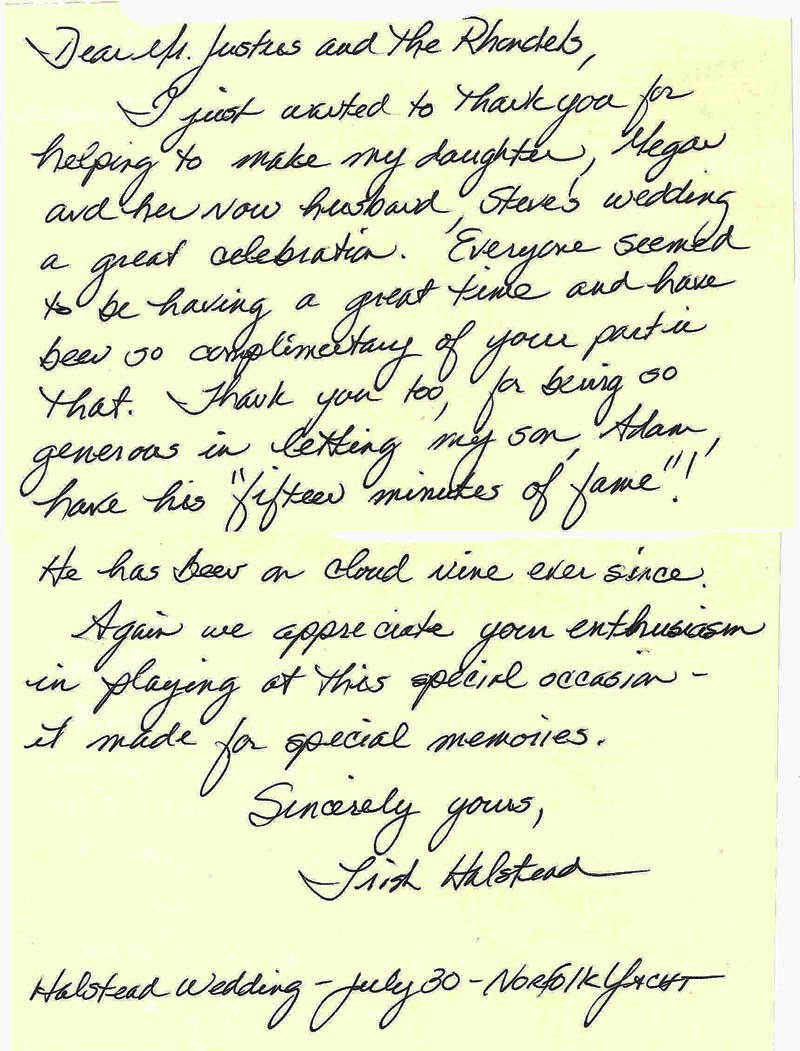 Dear Mr. Justus and the Rhondels,
I just wanted to thank you for
helping to make my daughter, Megan
and her now husband, Steve's wedding
a great celebration. Everyone seemed
to be having a great time and have
been so complimentary of your part in
that. Thank you too, for being so
generous in letting my son, Adam,
have his "fifteen minutes of fame"!
He has been on cloud nine ever since.
Again we appreciate your enthusiasm
in playing at this special occasion -
it made for special memories.
Sincerely yours,
Trish Halstead
Halstead Wedding - July 30 - Norfolk Yacht